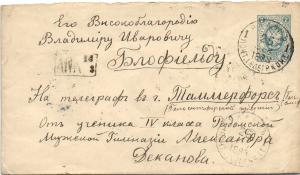 Его Высокоблагородію
Владиміру Иваровичу
Блофіельду
На телеграфъ въ г. Таммерфорсъ
Отъ ученика IV класса Радомской
Мужской Гимназіи Александра
Деканова